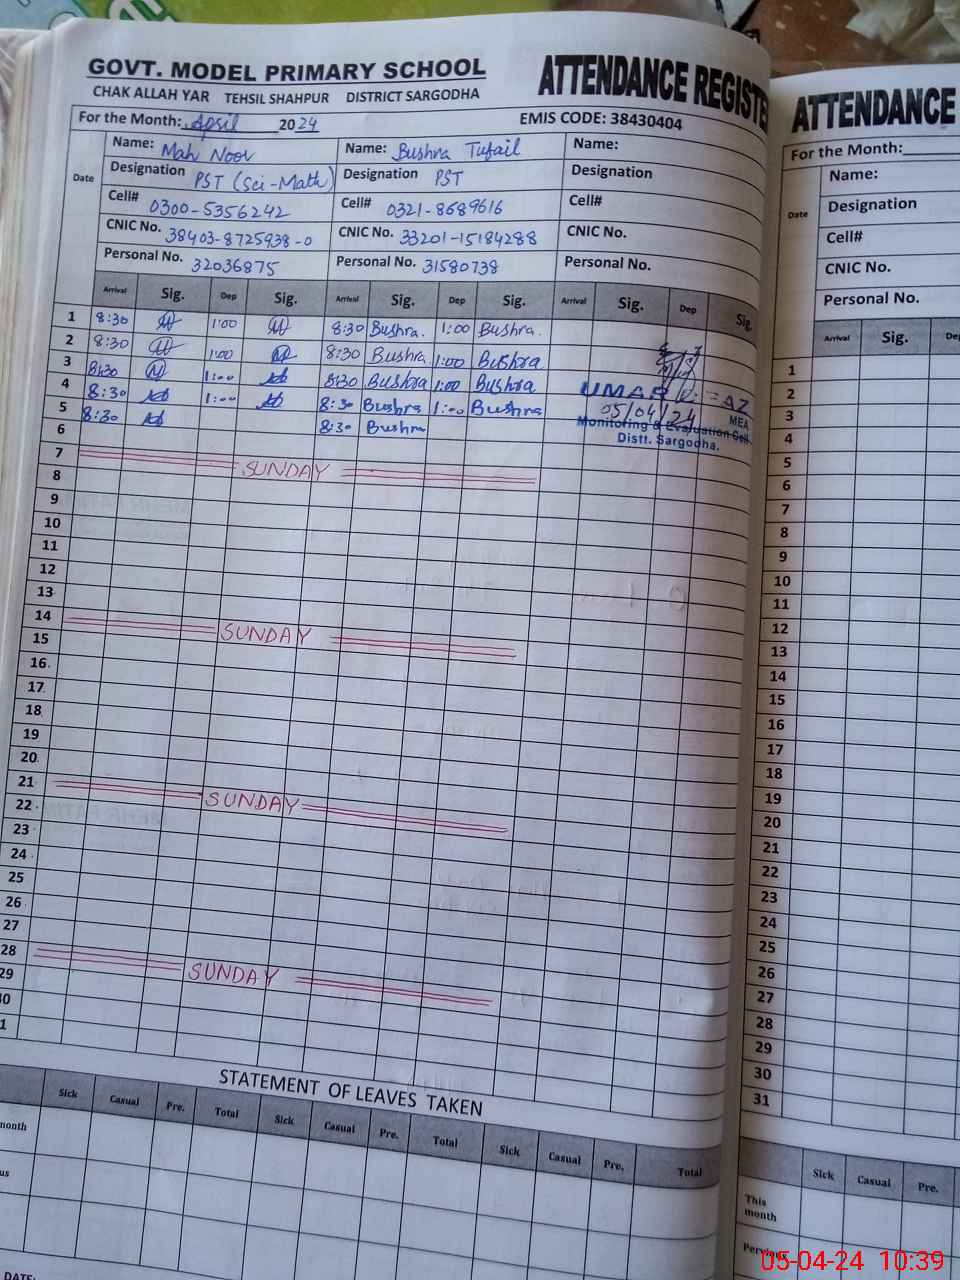 GOVT. MODEL PRIMARY SCHOOL
CHAK ALLAH YAR TEHSIL SHAHPUR DISTRICT SARGODHA
ATTENDANCE REGISTE
For the Month: April 2024
EMIS CODE: 38430404
Date
Name: Mah Noor Name: Bushra Tufail Name:
Designation PST (Sci-Math) Designation PST Designation
Cell# 0300-5356242 Cell# 0321-8689616 Cell#
CNIC No. 38403-8725938-0 CNIC No. 33201-15184288 CNIC No.
Personal No. 32036875 Personal No. 31580738 Personal No.
Arrival Sig. Dep Sig. Arrival Sig. Dep Sig. Arrival Sig. Dep Sig.
1 8:30 1:00 8:30 Bushra. 1:00 Bushra.
2 8:30 1:00 8:30 Bushra 1:00 Bushra
3 8:30 1:00 8:30 Bushra 1:00 Bushra
4 8:30 1:00 8:30 Bushra 1:00 Bushra
5 8:30 8:30 Bushra
UMAR
05/04/24 MEA
Monitoring & Evaluation Cell
Distt. Sargodha.
6
7 SUNDAY
8
9
10
11
12
13
14 SUNDAY
15
16
17
18
19
20
21 SUNDAY
22
23
24
25
26
27
28 SUNDAY
29
0
1
STATEMENT OF LEAVES TAKEN
Sick Casual Pre. Total Sick Casual Pre. Total Sick Casual Pre. Total
month
us
DATE:
ATTENDANCE
For the Month:
Date
Name:
Designation
Cell#
CNIC No.
Personal No.
Arrival Sig. De
1
2
3
4
5
6
7
8
9
10
11
12
13
14
15
16
17
18
19
20
21
22
23
24
25
26
27
28
29
30
31
Sick Casual Pre.
This
month
05-04-24 10:39